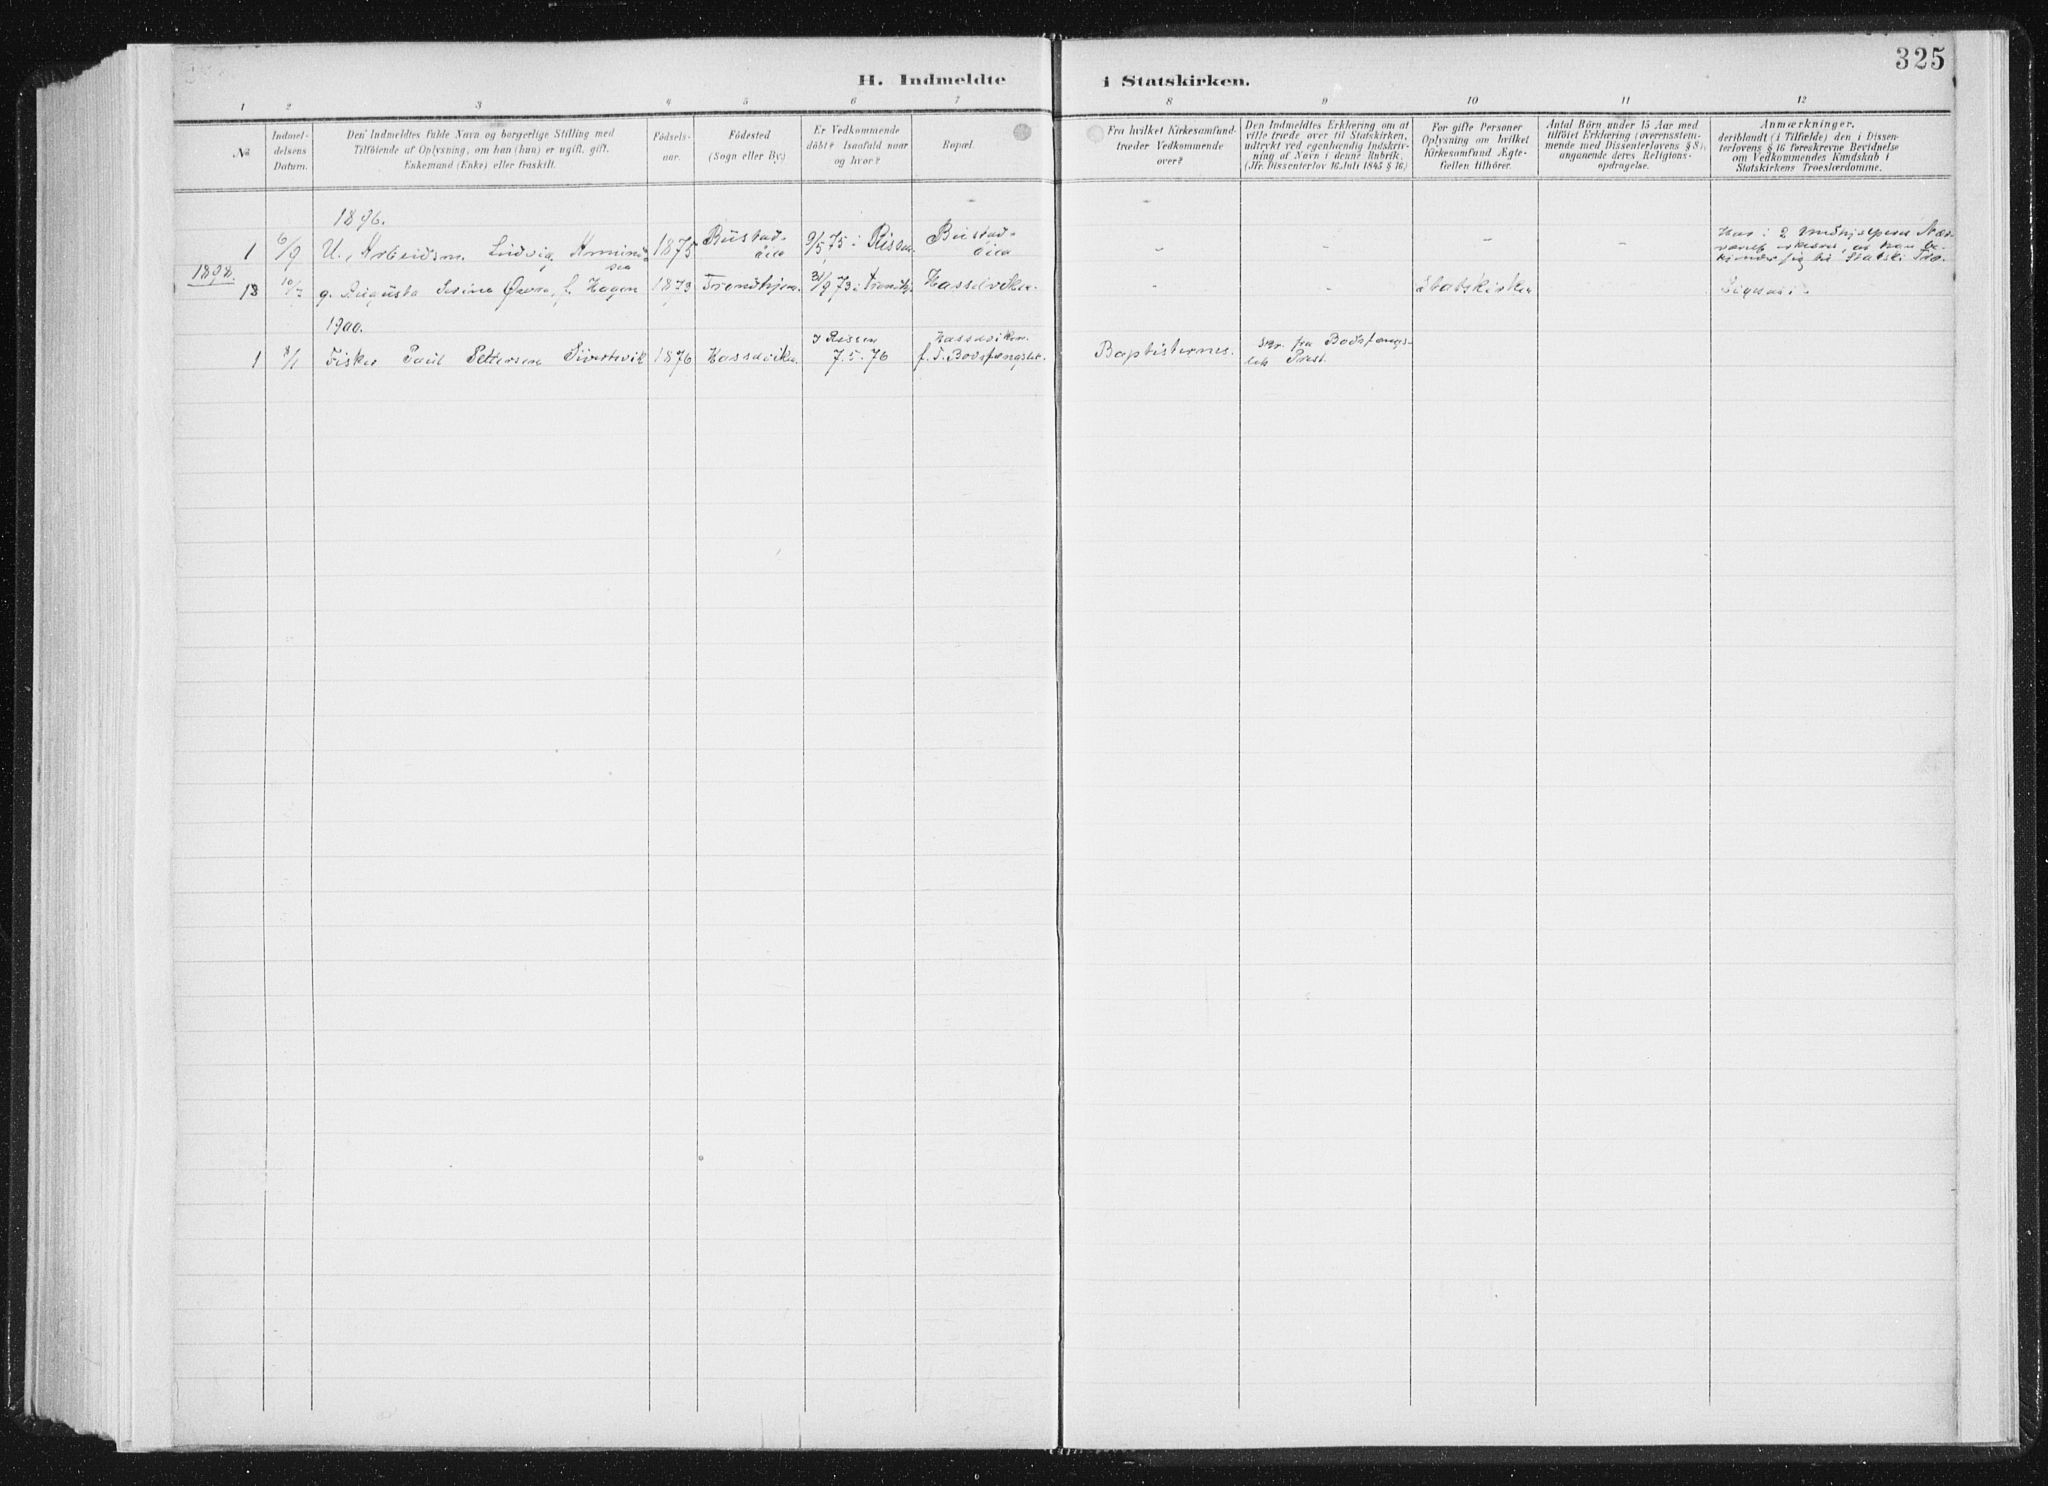 325
H. Indmeldte i Statskirken.
1 2 3 4 5 6 7 8 9 10 11 12
№
Indmel-
delsens
Datum.
Den Indmeldtes fulde Navn og borgerlige Stilling med
Tilföiende af Oplysning, om han (hun) er ugift, gift,
Enkemand (Enke) eller fraskilt.
Födsels-
aar.
Födested
(Sogn eller By.)
Er Vedkommende
döbt? Isaafald naar
og hvor?
Bopæl.
Fra hvilket Kirkesamfund
træder Vedkommende
over?
Den Indmeldtes Erklæring om at
ville træde over til Statskirken,
udtrykt ved egenhændig Indskriv-
ning af Navn i denne Rubrik.
(Jfr. Dissenterlov 16 Juli 1845 § 16)
For gifte Personer
Oplysning om hvilket
Kirkesamfund Ægte-
fællen tilhörer.
Antal Börn under 15 Aar med
tilföiet Erklæring (overensstem-
mende med Dissenterlovens § 8),
angaaende deres Religions-
opdragelse.
Anmærkninger,
deriblandt (i Tilfælde) den i Dissen-
terlovens § 16 foreskrevne Bevidnelse
om Vedkommendes Kundskab i
Statskirkens Troeslærdomme.
1896.
1 6/9 U. Arbeidsm. Ludvig 1875 9/5 75 i Rissen - - - -
Har i 2 Medhjelperes Nær-
1898.
13 10/7 g. Augusta f. Hagen 1873 Trondhjem 73 i Trondhj. Hasselviken - - Statskirken -
1900.
1 8/1 Fisker Paul Pettersen Sivertsvik 1876 Hasselviken
I Rissen
7.5.76
Hasselviken
f. T. Bodsfængslet.
Baptisternes.
Skr. fra Bodsfængs-
lets Prest.